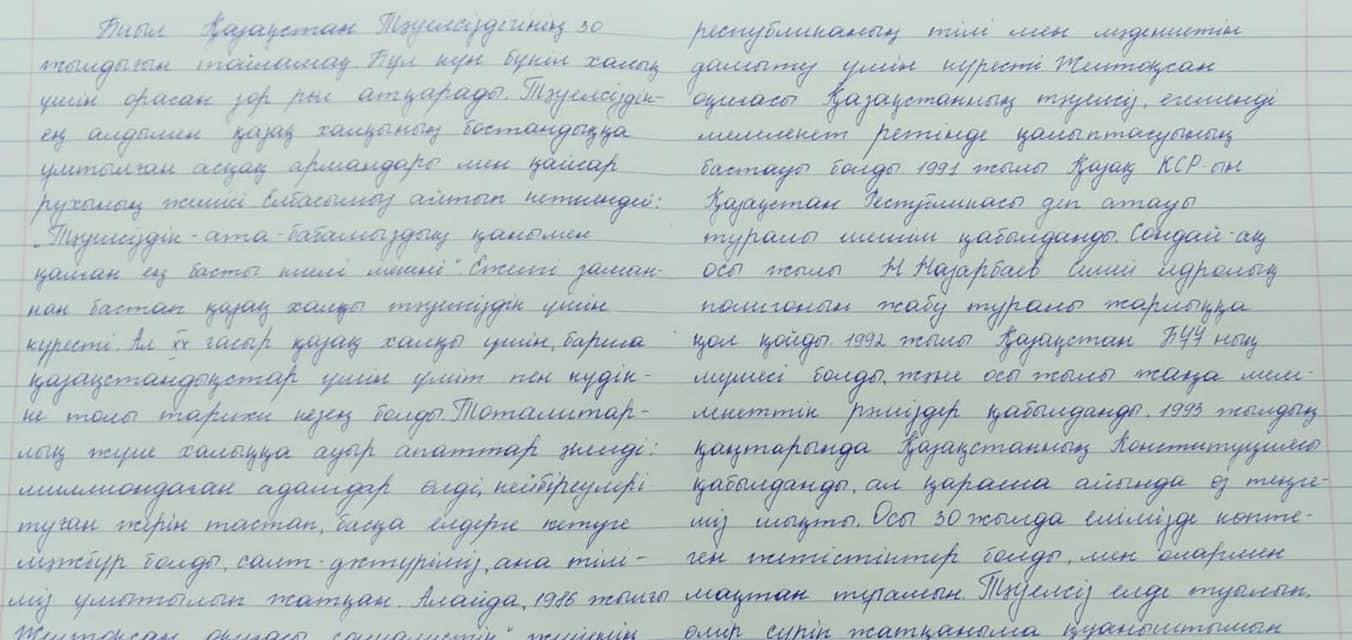 Биыл Қазақстан Тәуелсіздігінің 30
жылдығын тойламақ. Бұл күн бүкіл халық
үшін орасан зор рөл атқарады. Тәуелсіздік-
ең алдымен қазақ халқының бостандыққа
ұмтылған асқақ армандары мен қайсар
рухының жемісі. Елбасымыз айтып кеткендей:
"Тәуелсіздік - ата-бабамыздың қанымен
қалған ең басты киелі мекені". Ежелгі заман-
нан бастап қазақ халқы тәуелсіздік үшін
күресті. Ал XX ғасыр қазақ халқы үшін, барша
қазақстандықстар үшін үміт пен күдік-
ке толы тарихи кезең болды. Тоталитар-
лық жүйе халыққа ауыр апаттар әкелді:
миллиондаған адамдар өлді, кейбіреулері
туған жерін тастап, басқа елдерге кетуге
мәжбүр болды, салт-дәстүріміз, ана тілі-
міз ұмытылып жатқан. Алайда, 1986 жылғы
Желтоқсан оқиғасы социалистік" жүйенің
республиканың тілі мен мәдениетін
дамыту үшін күресті. Желтоқсан
оқиғасы Қазақстанның тәуелсіз, егеменді
мемлекет ретінде қалыптасуының
бастауы болды. 1991 жылы Қазақ КСР-ын
Қазақстан Республикасы деп атауы
туралы шешім қабылданды. Сондай-ақ
осы жылы Н Назарбаев Семей ядролық
полигонын жабу туралы жарлыққа
қол қойды. 1992 жылы Қазақстан БҰҰ ның
мүшесі болды, және осы жылы жаңа мем-
лекеттік рәміздер қабылданды. 1993 жылдың
қаңтарында Қазақстанның Конституциясы
қабылданды, ал қараша айында өз теңге-
міз шықты. Осы 30 жылда елімізде көпте-
ген жетістіктер болды, мен олармен
мақтан тұтамын. Тәуелсіз елде туылып,
өмір сүріп жатқаныма қуаныштымын